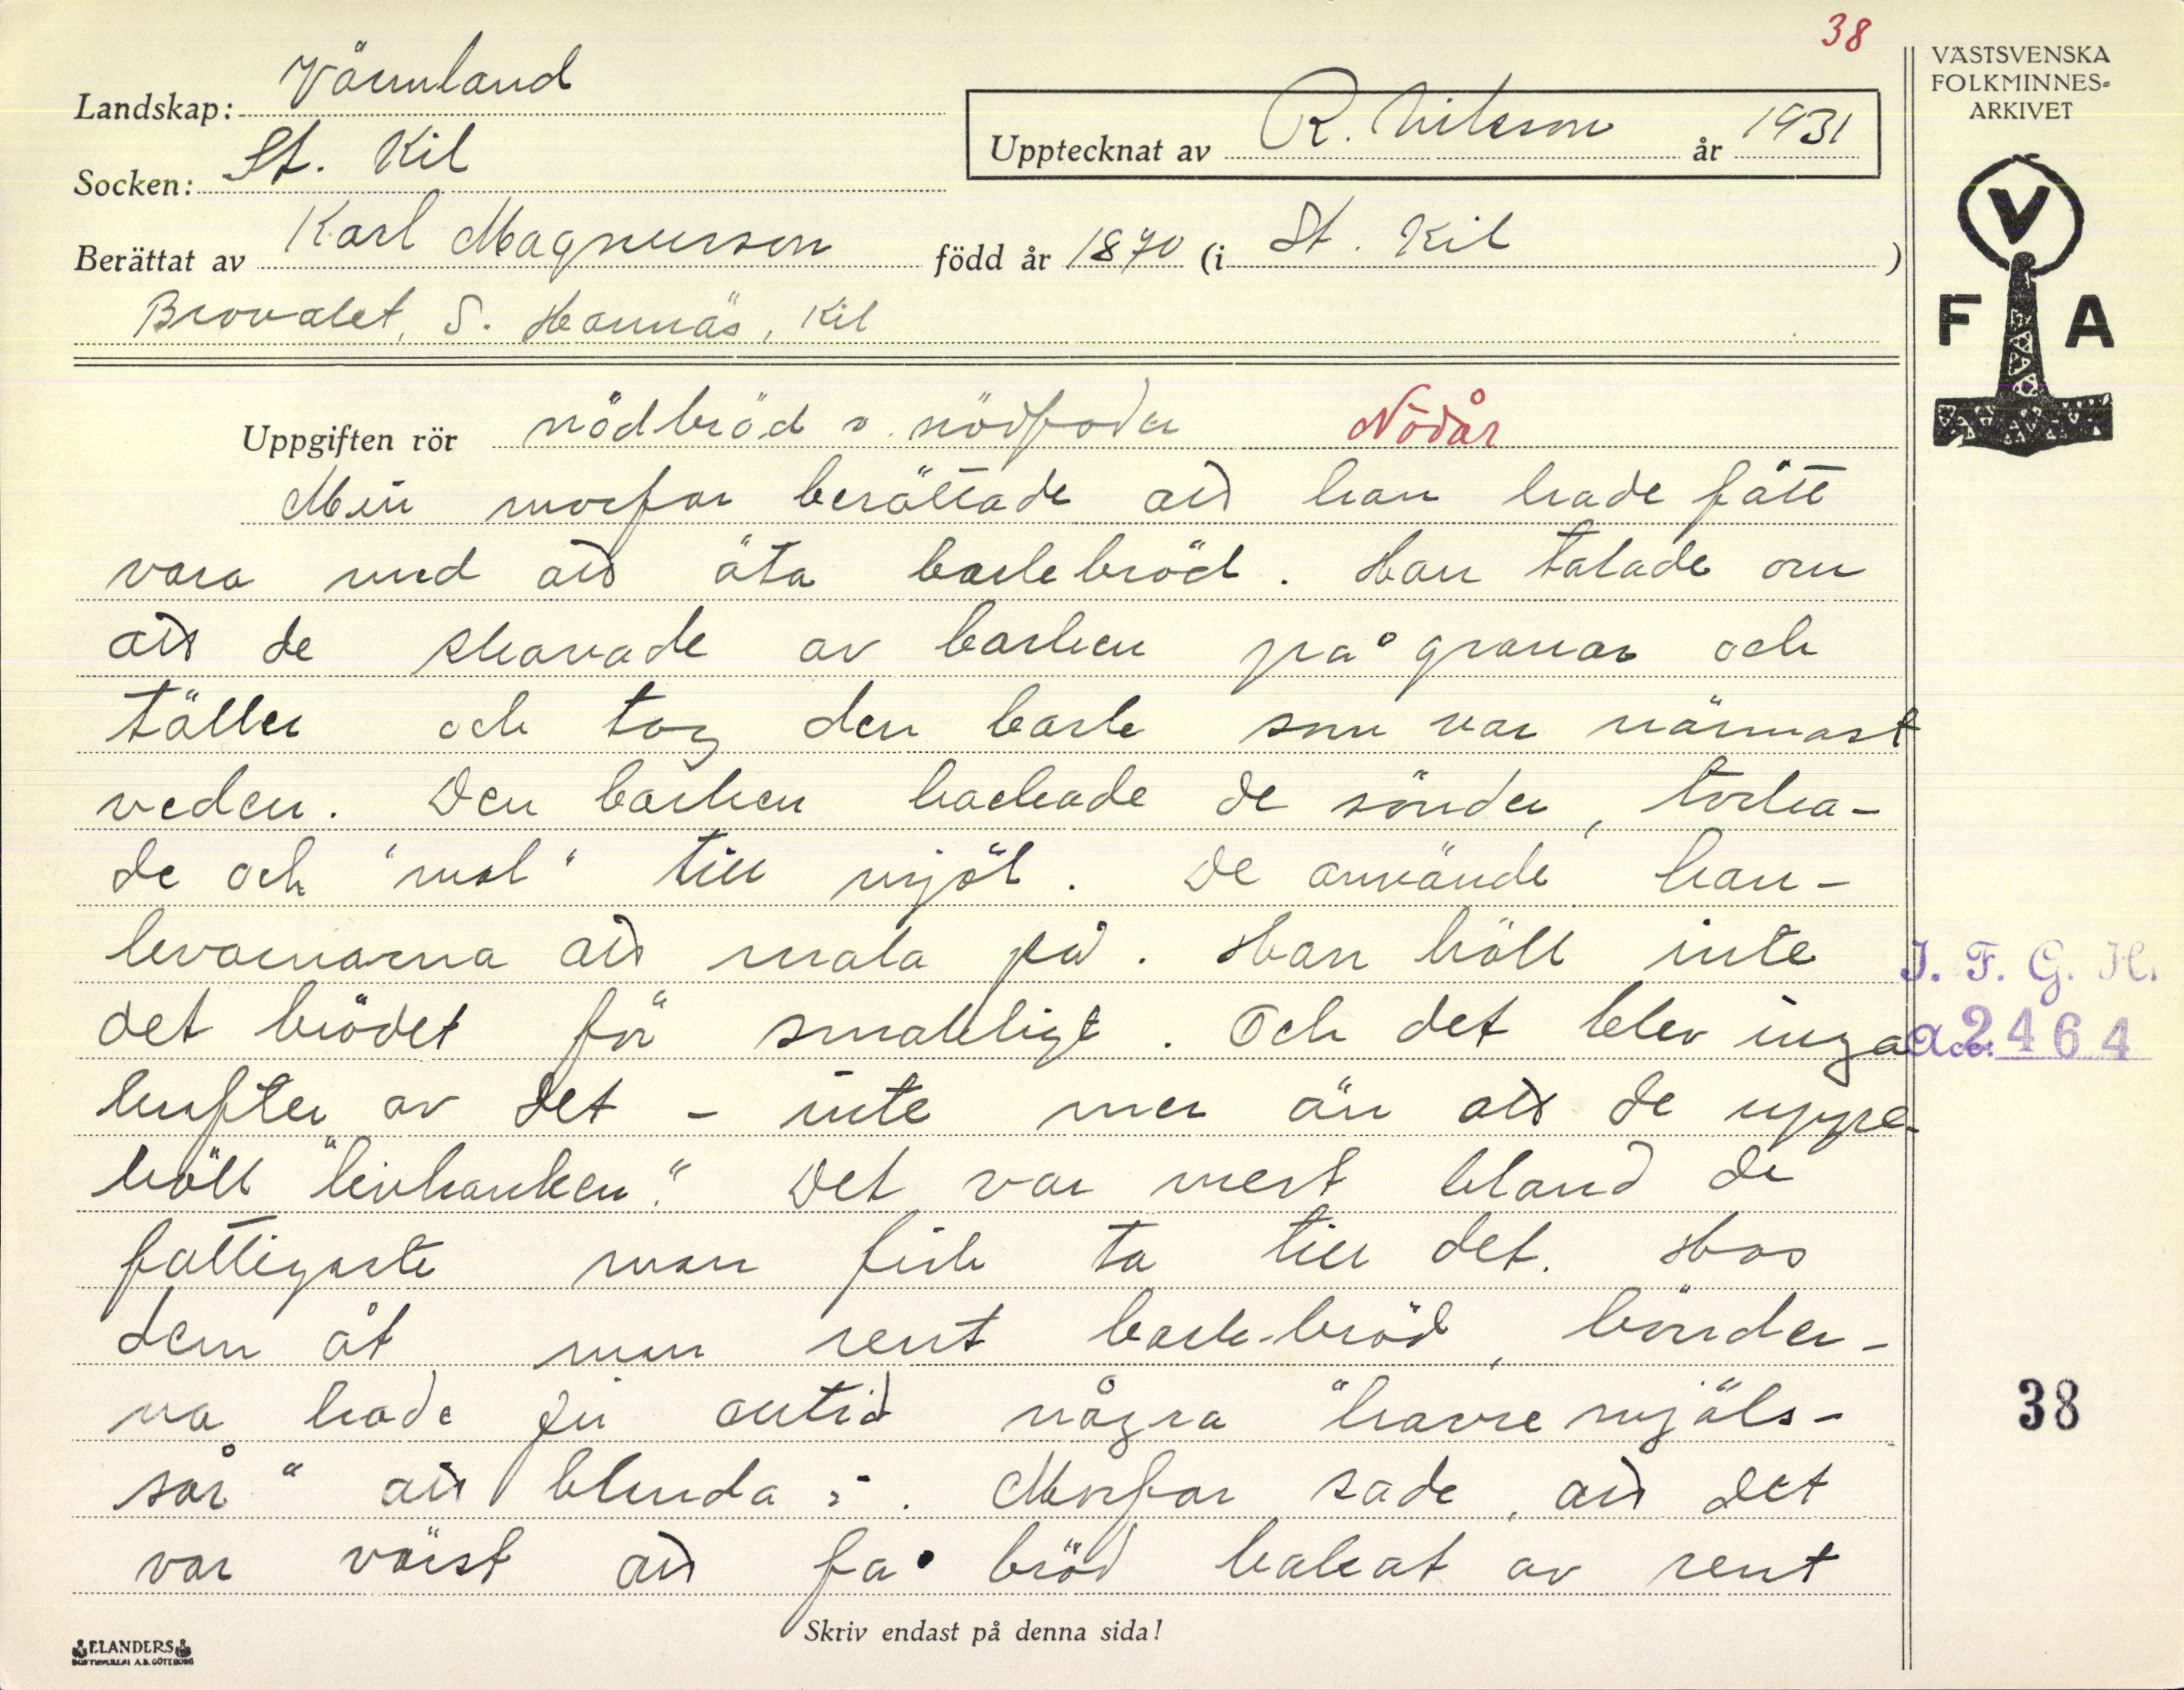 38
VÄSTSVENSKA
FOLKMINNES-
ARKIVET
V
F A
Landskap: Värmland
Socken: St. Kil
Upptecknat av R. Nilsson år 1931
Berättat av Karl Magnusson född år 1870 (i St. Kil )
S. Hannäs, Kil
Uppgiften rör nödbröd o. nödfoder Nödår
Min morfar berättade att han hade fått
vara med att äta barkbröd. Han talade om
att de skavade av barken på granar och
täller och tog den bark som var närmast
veden. Den barken hackade de sönder, torka-
de och "mol" till mjöl. De använde han-
kvarnarna att mala på. Han höll inte
det brödet för smakligt. Och det blev inga
krafter av det - inte mer än att de uppe-
höll "livhanken." Det var mest bland de
fattigaste man fick ta till det. Hos
dem åt man rent bark-bröd, bönder-
na hade ju alltid några "havremjöls-
sår" att blenda i. Morfar sade, att det
var värst att få bröd bakat av rent
J. F. G. H.
Acc. 2464
38
Skriv endast på denna sida!
ELANDERS
BOKTRYCKERI A.B. GÖTEBORG